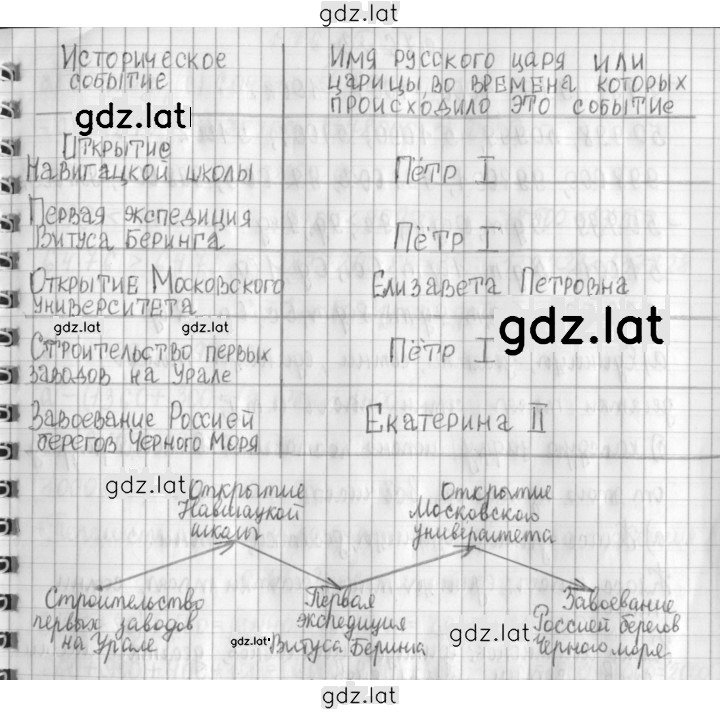 gdz.lat
Историческое событие
Имя русского царя или царицы, во времена которых происходило это событие
gdz.lat
Открытие
Навигацкой школы
Пётр I
Первая экспедиция
Витуса Беринга
Пётр I
Открытие Московского
университета
Елизавета Петровна
gdz.lat
gdz.lat
gdz.lat
Строительство первых
заводов на Урале
Пётр I
Завоевание Россией
берегов Черного моря
Екатерина II
gdz.lat
Открытие
Навигацкой
школы
Открытие
Московского
университета
Строительство
первых заводов
на Урале
Первая
экспедиция
gdz.lat
Витуса Беринга
gdz.lat
Завоевание
Россией берегов
Черного моря
gdz.lat